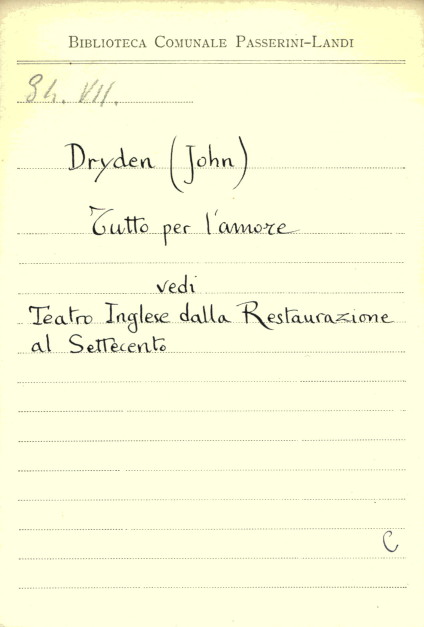 BIBLIOTECA COMUNALE PASSERINI-LANDI
Sh. VII.
Dryden (John)
Tutto per l'amore
vedi
Teatro Inglese dalla Restaurazione
al Settecento
C